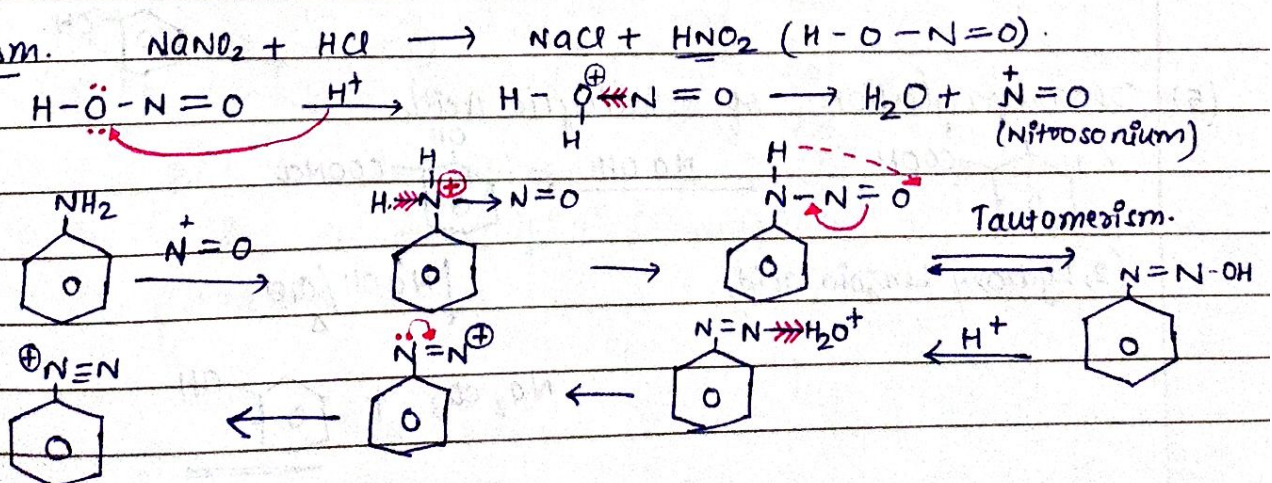 sm. NaNO₂ + HCl ⟶ NaCl + HNO₂ (H-O-N=O).
H-Ö-N=O H⁺⟶ H-O⊕-N=O ⟶ H₂O + N⁺=O
H (Nitrosonium)
H H
NH₂ N⁺=O ⟶ H-N⊕→N=O ⟶ N-N=O Tautomerism. ⇌
N=N-OH
⊕N≡N ⟵ N̈=N⊕ ⟵ N=N-H₂O⁺ ⟵ H⁺